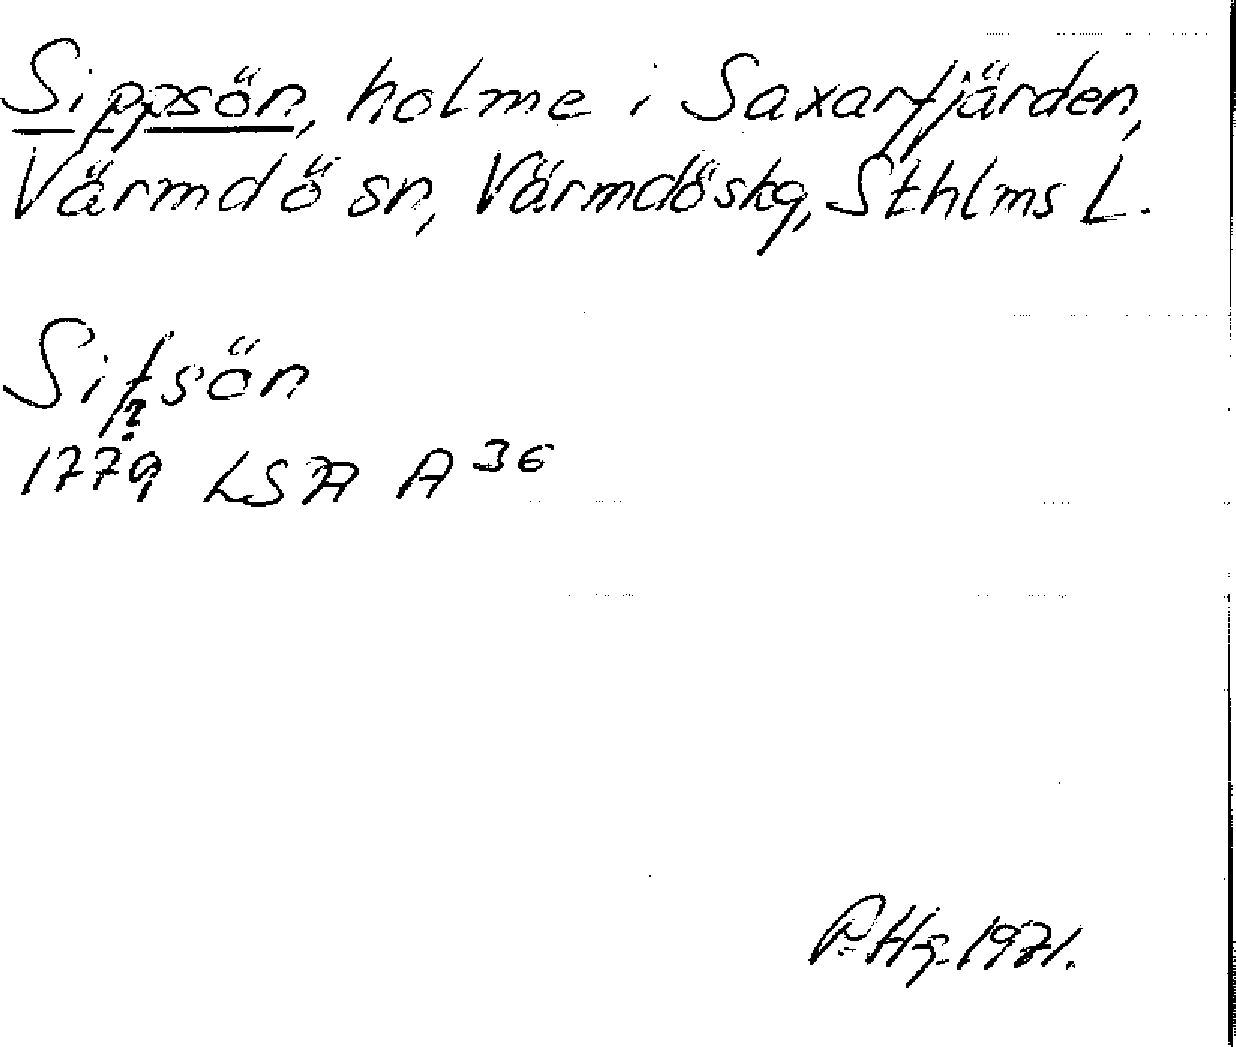 Sippsön, holme i Saxarfjärden,
Värmdö sn, Värmdöskg, Sthlms L.
Sifsön
?
1779 LSA A 36
P. Hg. 1971.